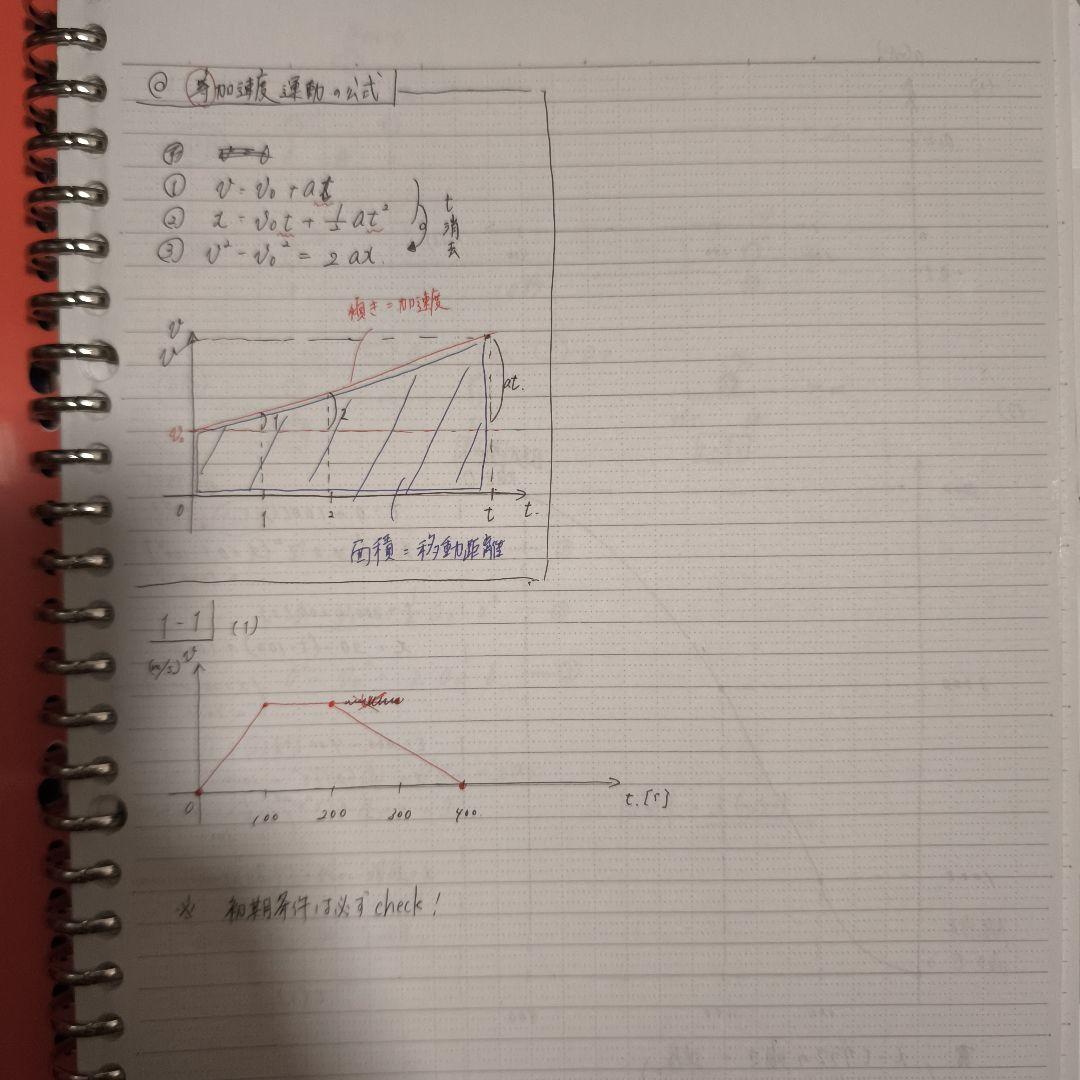 ◎ 等加速度運動の公式
① v = v₀ + at
② x = v₀t + 1/2 at²
③ v² - v₀² = 2ax.
t消去
傾き = 加速度
v
v
at.
1
2
v₀
0
1
2
t
t.
面積 = 移動距離
1-1 (1)
(m/s) v
0
100
200
300
400
t.[s]
※ 初期条件は必ずcheck!